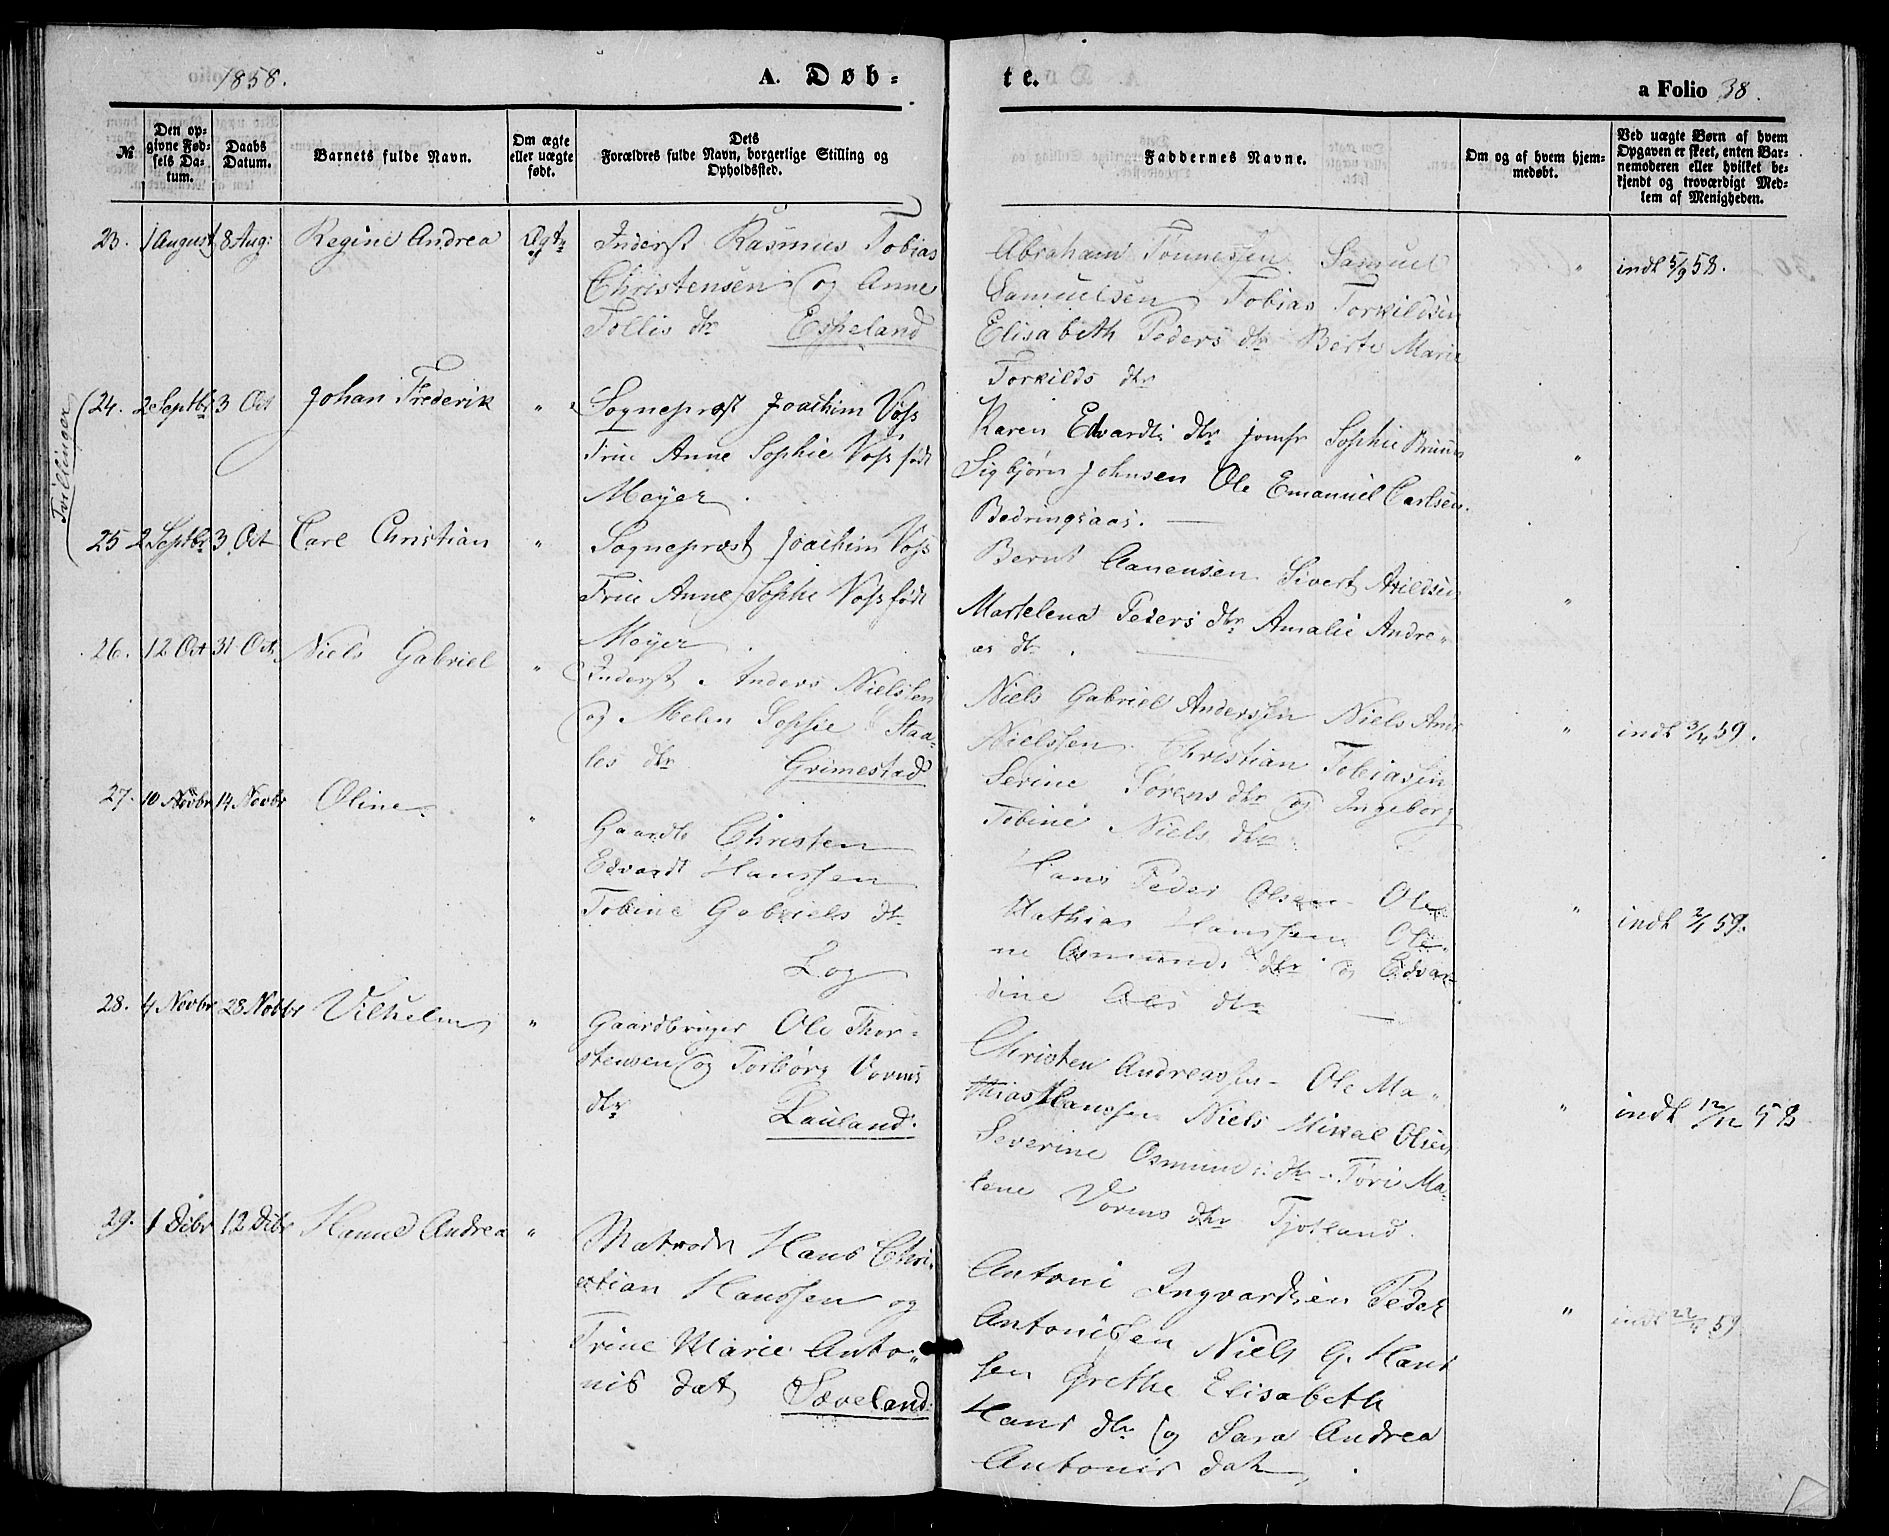 1858.
A. Døb-
te.
a Folio 38.
№
Den opgivne Fødsels Datum.
Daabs Datum.
Barnets fulde Navn.
Om ægte eller uægte født.
Dets Forældres fulde Navn, borgerlige Stilling og Opholdssted.
Faddernes Navne.
Om og af hvem hjemmedøbt.
Ved uægte Børn af hvem Opgaven er skeet, enten Barnemoderen eller hvilket bekjendt og troværdigt Medlem af Menigheden.
23. 1 August 8 Aug: Regine Andrea Ægte
Inderst Rasmus Tobias
Christensen og Anne
Tollis dtr Espeland
Abraham Tønnessen Samuel
Samuelsen Tobias Torkildsen
Elisabeth Peders dtr Berte Marie
Torkilds dtr
" indt 5/9 58.
Tvillinger
24. 2 Septbr 3 Oct Johan Frederik "
Sogneprest Joachim Voss
Frue Anne Sophie Voss født
Meyer.
Karen Edvards dtr jomfr Sophie
Sigbjørn Johnsen Ole Emanuel Carlsen
"
25 2 Septbr 3 Oct Carl Christian "
Sogneprest Joachim Voss
Frue Anne Sophie Voss født
Meyer.
Bernt Aanensen Sivert
Peders dtr Amalie Andre-
as dtr.
"
26. 12 Oct 31 Oct. Niels Gabriel "
Inderst Anders Nielssen
og Malen Sophie Staa-
les dtr Grimestad
Niels Gabriel Anderssen Niels And
Nielssen Christian Tobiassen
Serine Sørens dtr og Ingeborg
Tobine Niels dtr.
" indt 3/4 59.
27. 10 Novbr 14 Novbr Oline "
Gaardb Christen
Edvardt Hanssen
Tobine Gabriels dtr
Log
Hans Peder Olsen Ole
Mathias Hanssen Oli-
ne Osmunds dtr og Edvar-
dine Ols dtr
" indt 2/1 59.
28. 4 Novbr 28 Novbr Vilhelm "
Gaardbruger Ole Thor-
stensen og Torborg Vorms
dtr Lauland.
Christen Andreassen - Ole Ma-
thias Hanssen Niels Mikal Olsen
Severine Osmunds dtr - Tøri Ma-
lene Vorms dtr Tjotland.
" indt 12/12 58
29. 1 Dcbr 12 Dcbr Hanne Andrea "
Matros Hans Chri-
stian Hanssen og
Trine Marie Anto-
nis dat Sæveland.
Antoni Ingvardsen Peder
Antonissen Niels G. Hans
sen Grethe Elisabeth
Hans dtr og Sara Andrea
Antonis dat.
" indt 22/4 59